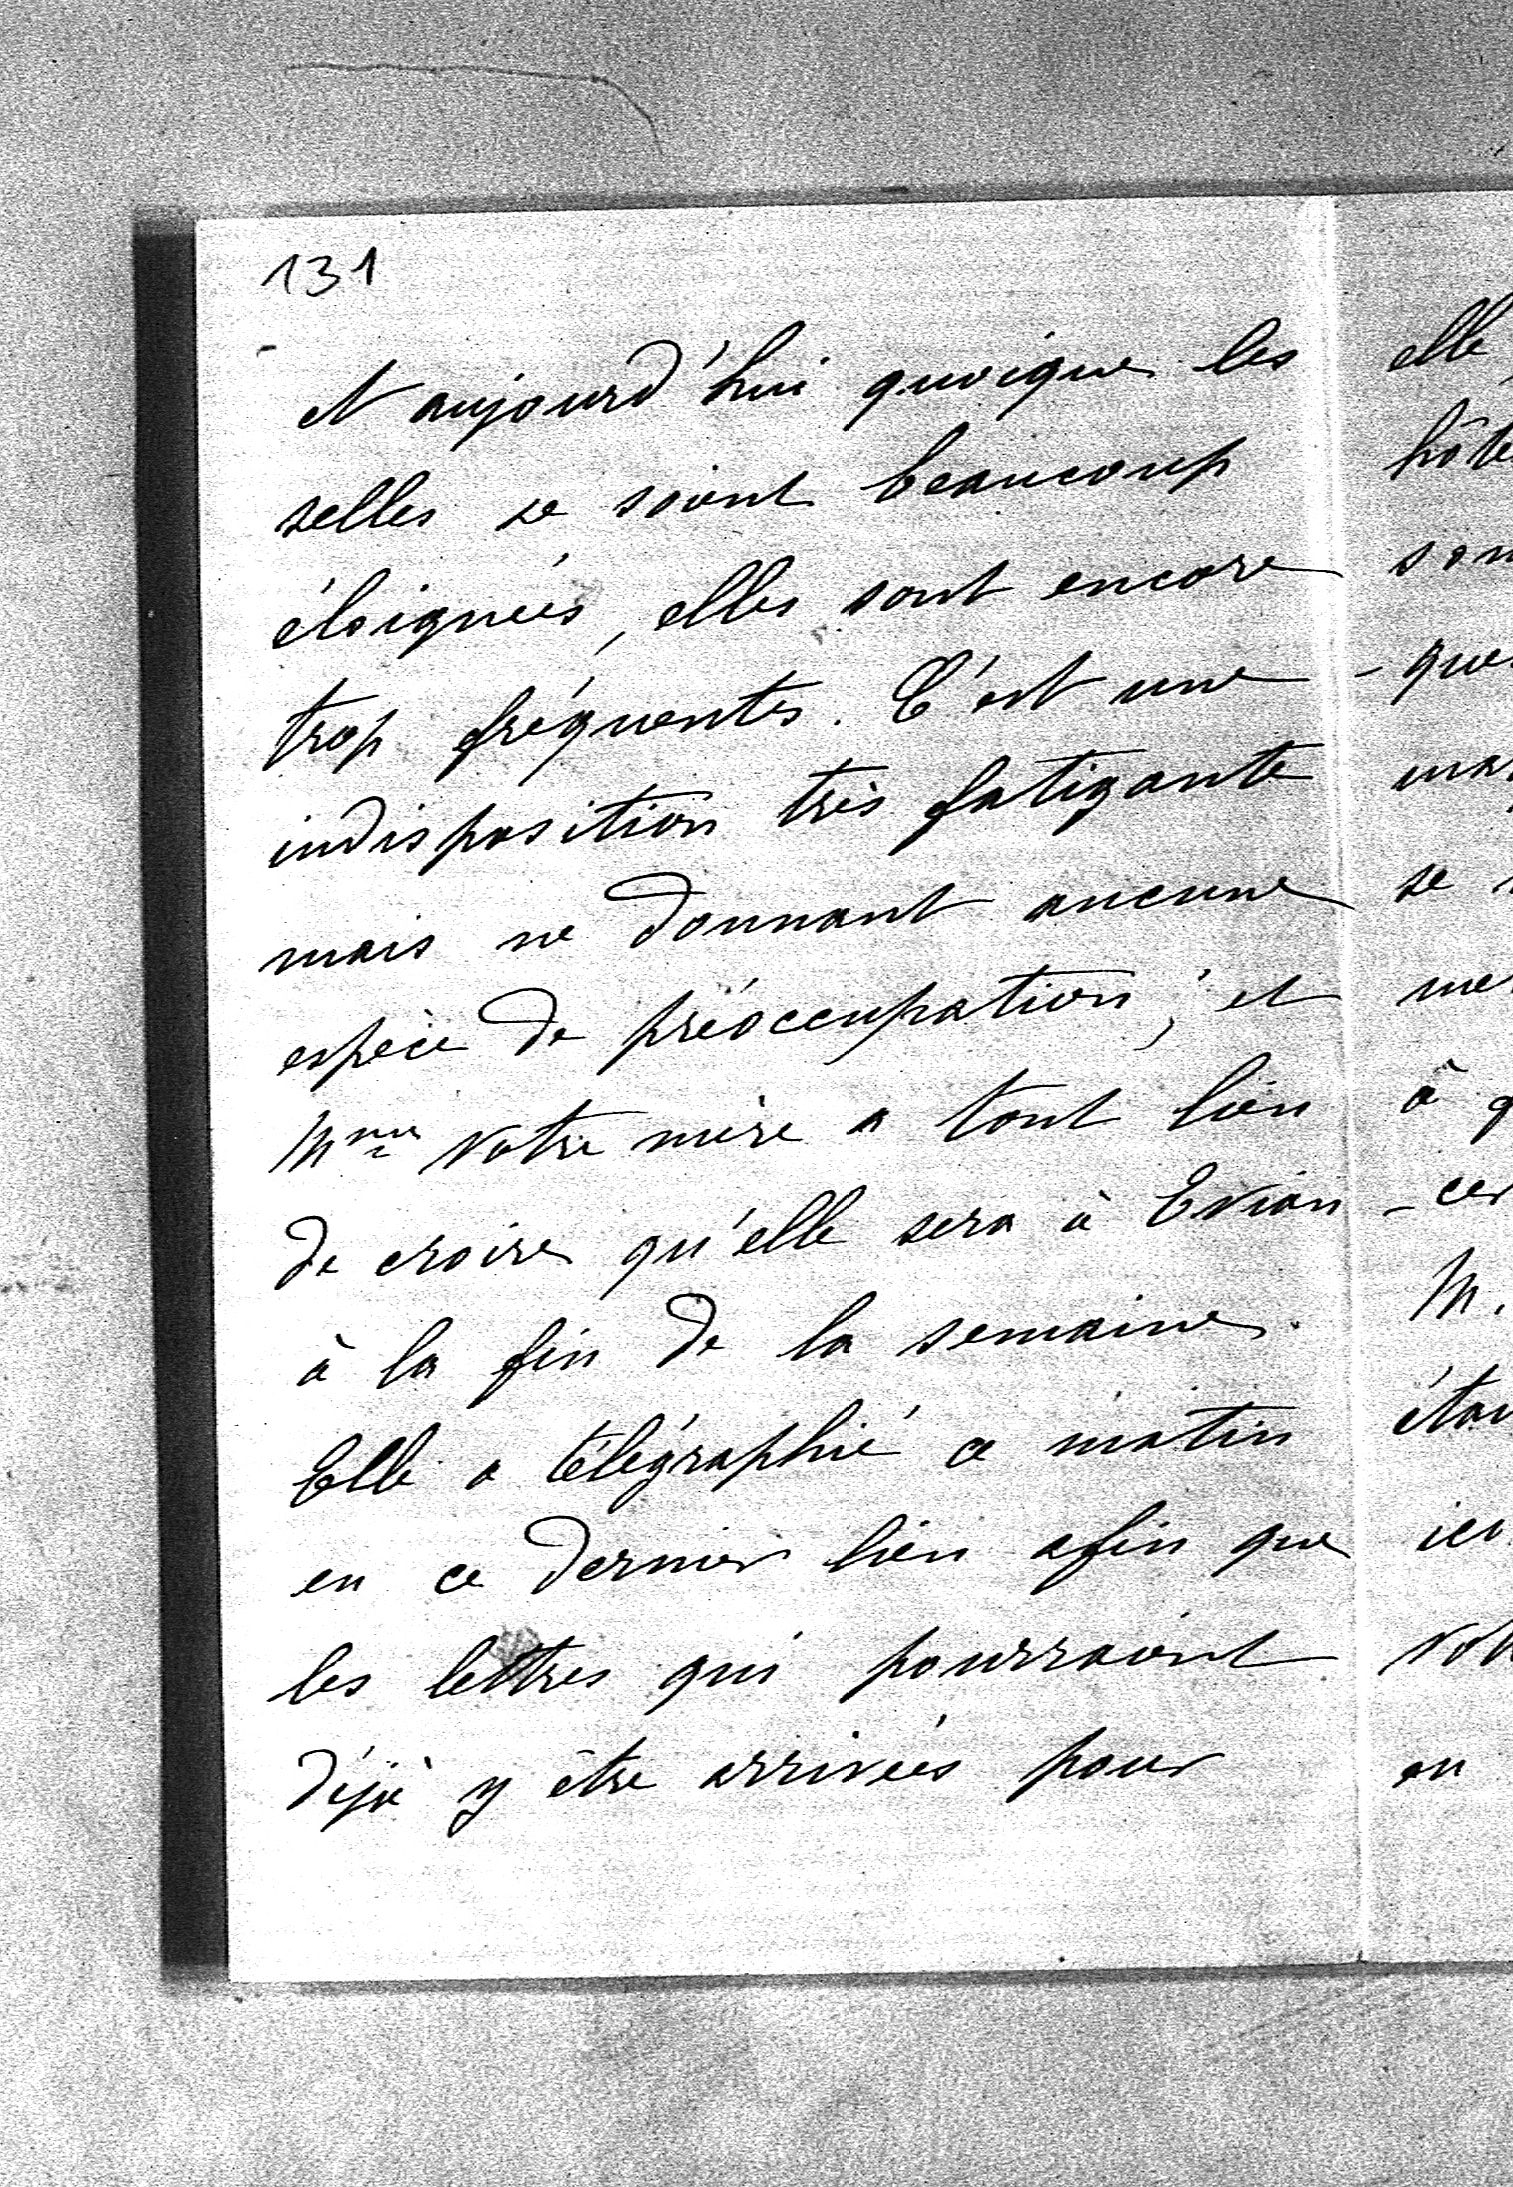 131
et aujourd'hui quoique les
selles se soient beaucoup
éloignées, elles sont encore
trop fréquentes. C'est une
indisposition très fatigante
mais ne donnant aucune
espèce de préoccupation ; et
Mme votre mère a tout lieu
de croire qu'elle sera à Evian
à la fin de la semaine.
Elle a télégraphié ce matin
en ce dernier lieu afin que
les lettres qui pourraient
déjà y être arrivées pour
elle
hôte
som
- que
ma
se
me
à q
- cer
M.
étai
ici
vot
en